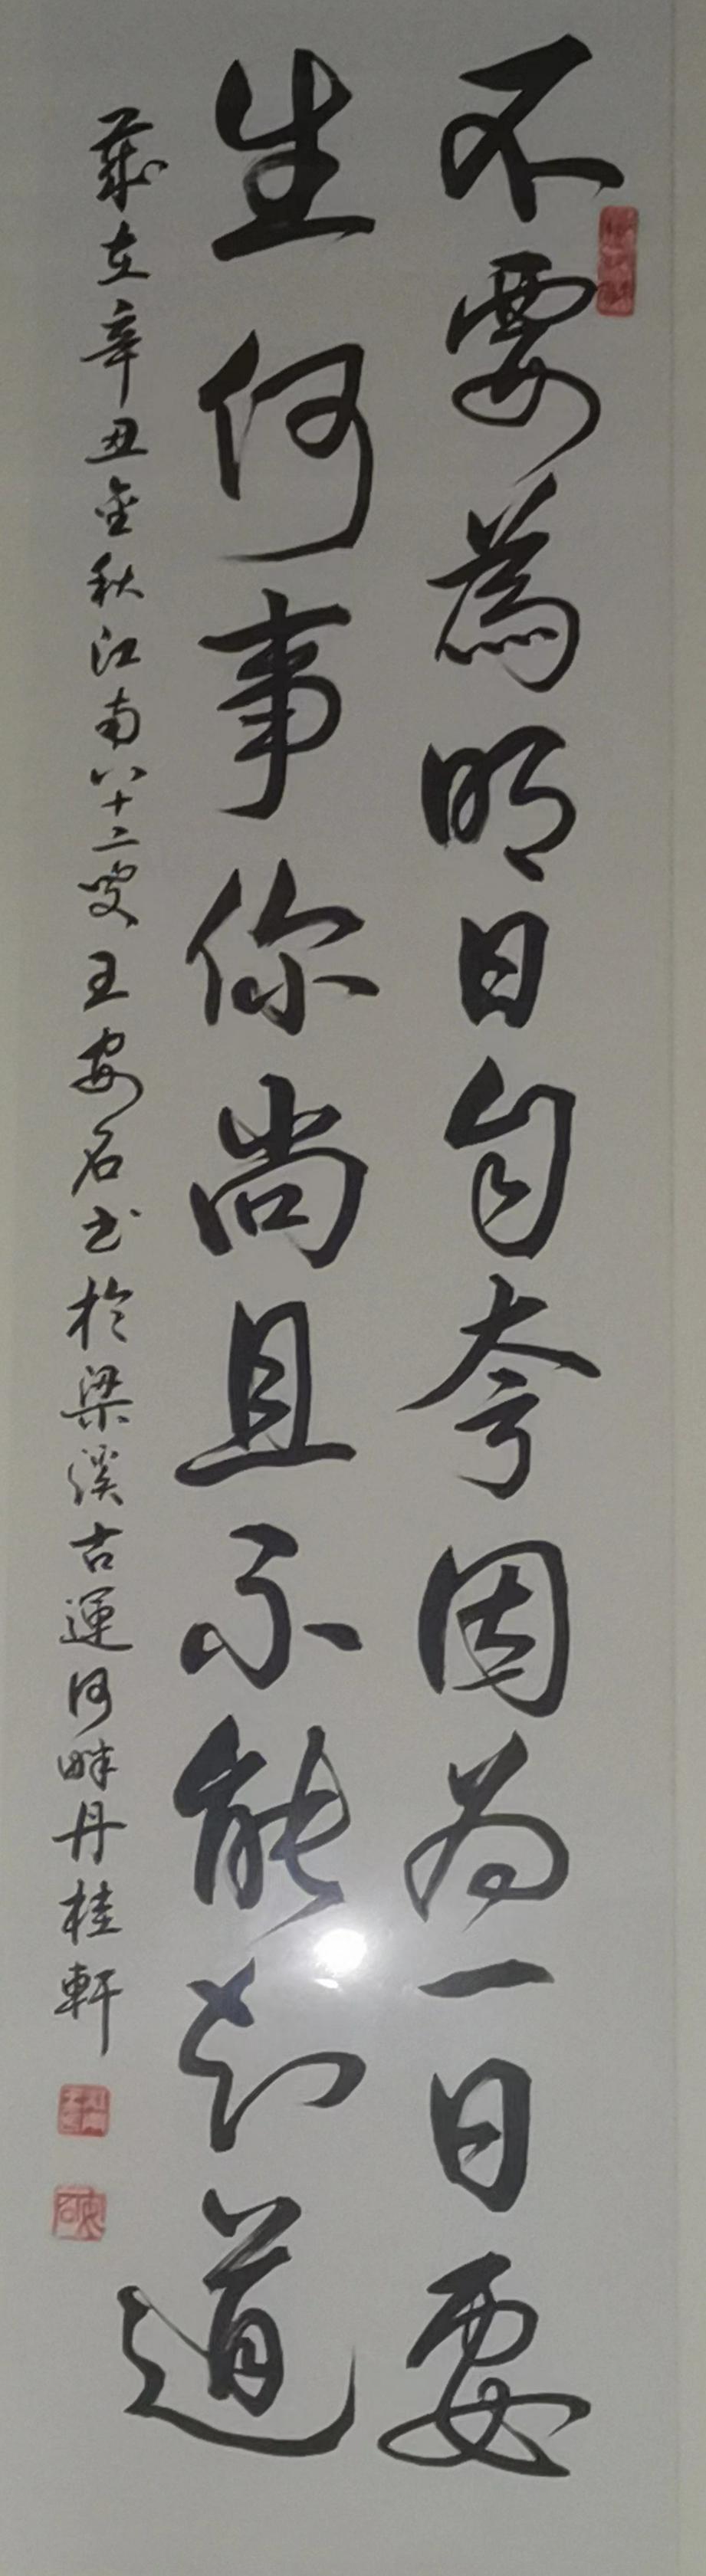 不要為明日自夸因为一日要
生何事你尚且不能知道
歲在辛丑金秋江南八十二叟王安石书於梁溪古運河畔丹桂軒